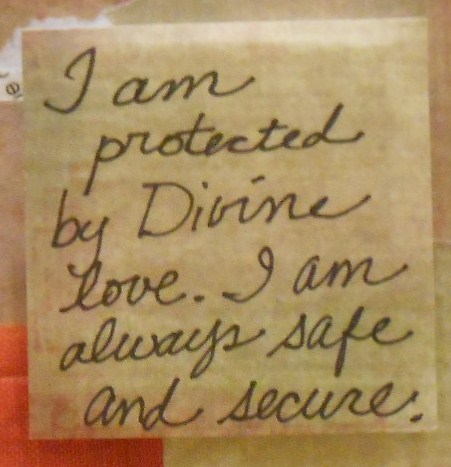 I am
protected
by Divine
love. I am
always safe
and secure.